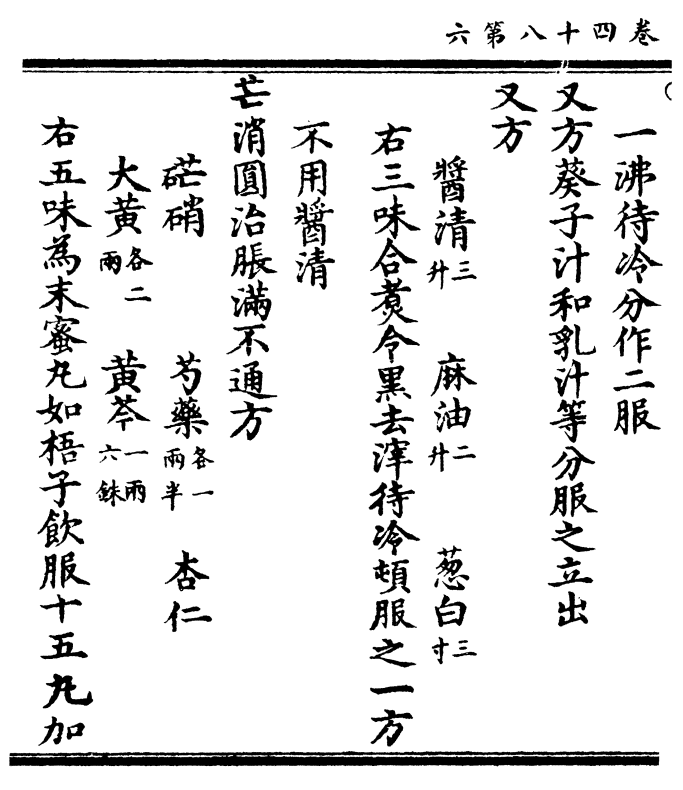 卷四十八第六
一沸待冷分作二服
又方葵子汁和乳汁等分服之立出
又方
醬清三升 麻油二升 葱白三寸
右三味合煑令黑去滓待冷頓服之一方
不用醬清
芒消圓治脹滿不通方
硭硝 芍藥各一兩半 杏仁
大黃各二兩 黃芩一兩六銖
右五味為末蜜丸如梧子飲服十五丸加